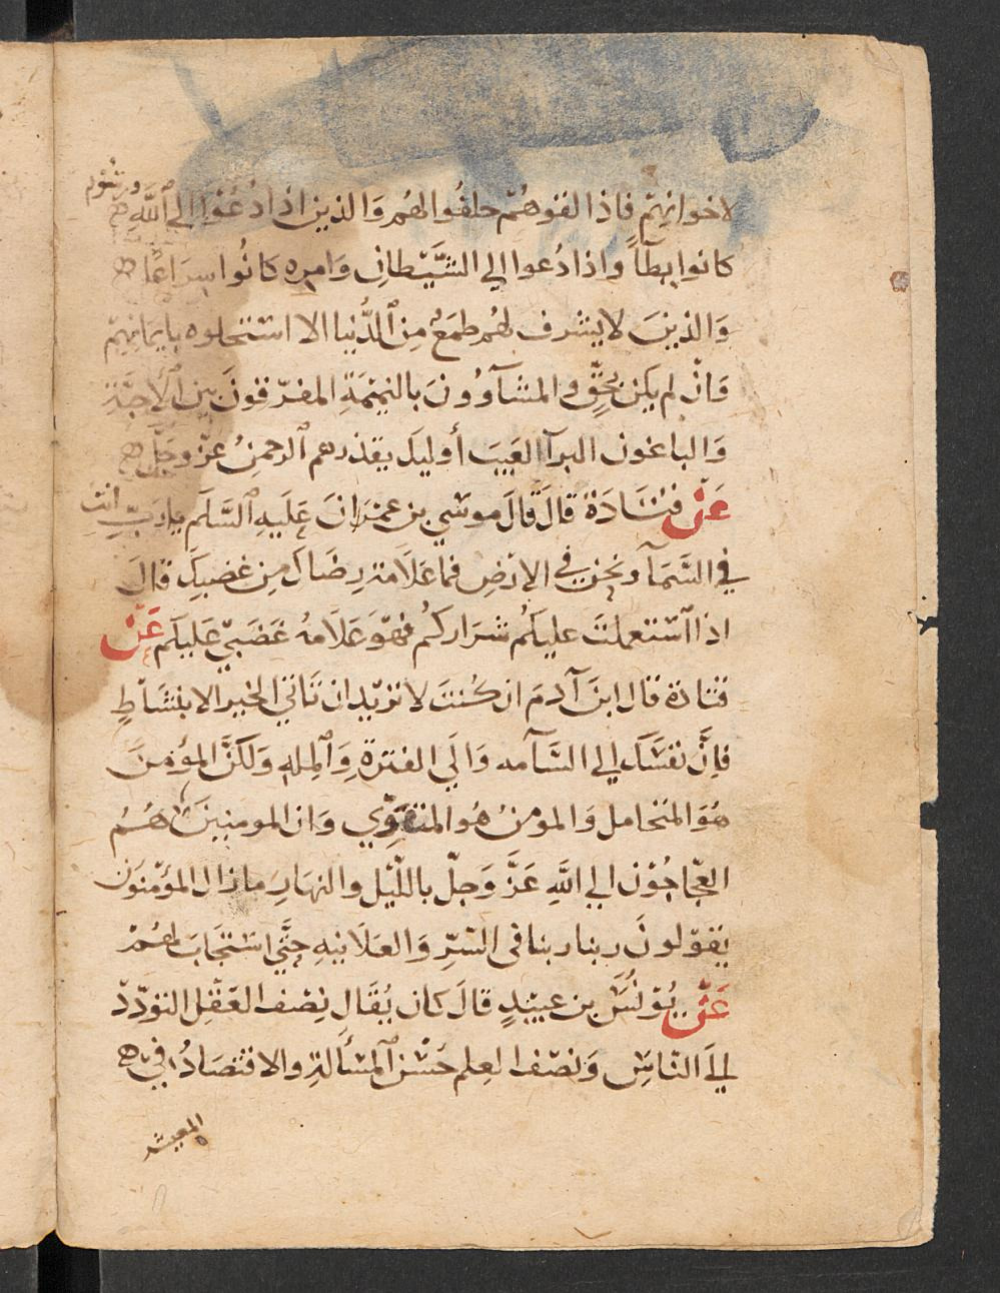 لاخوانهم فاذا لقوهم حلفوا لهم والذين اذا دُعُوا الي الله ورسوله
كانوا بِطآً واذا دُعوا الي الشَّيْطانِ وَامره كانُوا سِرَاعًا
وَالذينَ لا يشرف لهُم طمَعٌ مِن الدُّنيا الا استحلوه بايمانِهِم
وَانْ لم يكن بحقٍّ والمشاّؤونَ بالنميمَةِ المفرّقونَ بين الاحِبَّةِ
وَالباغون البرآ العَيبَ أوليك يقذرهم الرحمنُ عزّ وجلّ
عَنْ قتَادَة قالَ قالَ موسَي بن عمرَانَ عَلَيهِ السَّلَم يا رَبِّ انتَ
في السَّمَآ ونحن في الارضِ فما عَلاَمة رضَاك مِن غضبِكَ قالَ
اذا استعملتُ عليكُم شرَاركُم فهوَ عَلاَمةُ غَضَبِي عَليكم عَنْ
قتادة قال ابنَ آدمَ ان كُنتَ لا تريد ان تَاتي الخير الا بنشَاطٍ
فاِنَّ نفسَك الي السَّآمه وَالَي الفترةِ وَالمِله وَلكنَّ المؤمنَ
هُوَ المُتحامل وَالمومنُ هُو المتقوِّي وَان المومنِينَ هُمُ
العجّاجُوْن الي اللَّهِ عَزَّ وَجلّ باللّيْل والنهَارِ ما زال المؤمنُونَ
يَقوْلونَ ربنا ربنا في السّرِّ وَالعَلاَنيهِ حتَّي استَجَابَ لهُمْ
عَنْ يُوْنُسَ بن عبيْدٍ قالَ كان يُقَال نِصْف العَقْلِ التودّدُ
اليَ النّاسِ وَنِصْف العِلم حُسْن المسْأَلةِ والاقتصَادُ في
المعيشه